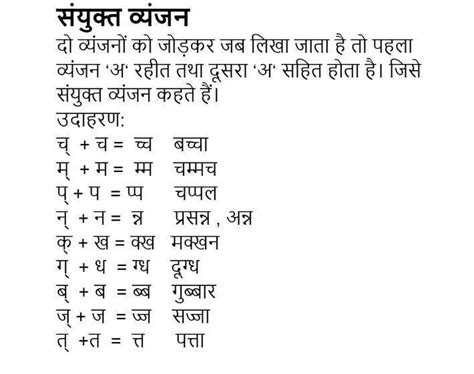 संयुक्त व्यंजन
दो व्यंजनों को जोड़कर जब लिखा जाता है तो पहला
व्यंजन ‘अ‘ रहीत तथा दूसरा ‘अ‘ सहित होता है। जिसे
संयुक्त व्यंजन कहते हैं।
उदाहरण:
च् + च = च्च बच्चा
म् + म = म्म चम्मच
प् + प = प्प चप्पल
न् + न = न्न प्रसन्न , अन्न
क् + ख = क्ख मक्खन
ग् + ध = ग्ध दूग्ध
ब् + ब = ब्ब गुब्बार
ज् + ज = ज्ज सज्जा
त् +त = त्त पत्ता